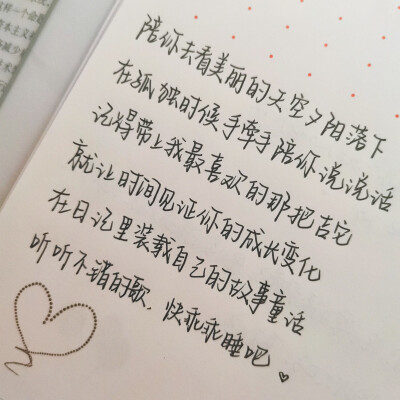 陪你去看美丽的天空夕阳落下
在孤独时候手牵手陪你说说话
记得带上我最喜欢的那把吉它
就让时间见证你的成长变化
在日记里装载自己的故事童话
听听不错的歌，快乖乖睡吧